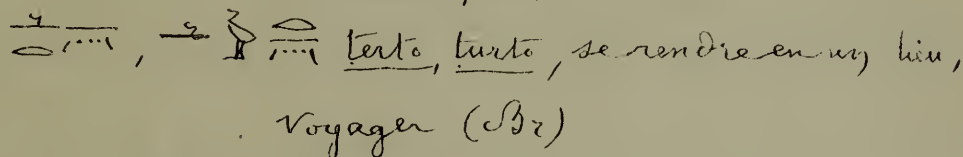 , terto, turto, se rendre en un lieu,
voyager (Br)